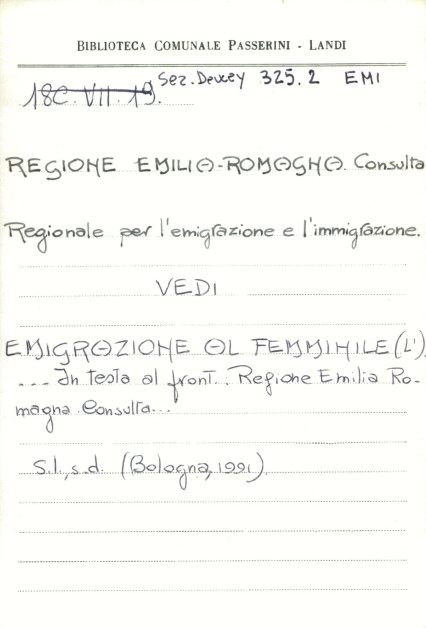 BIBLIOTECA COMUNALE PASSERINI - LANDI
Sez. Dewey 325.2 EMI
18C.VII.19.
REGIONE EMILIA-ROMAGNA. Consulta
Regionale per l'emigrazione e l'immigrazione.
VEDI
EMIGRAZIONE AL FEMMINILE (L').
... In testa al front.: Regione Emilia Ro-
magna. Consulta...
S.l., s.d. (Bologna, 1991).